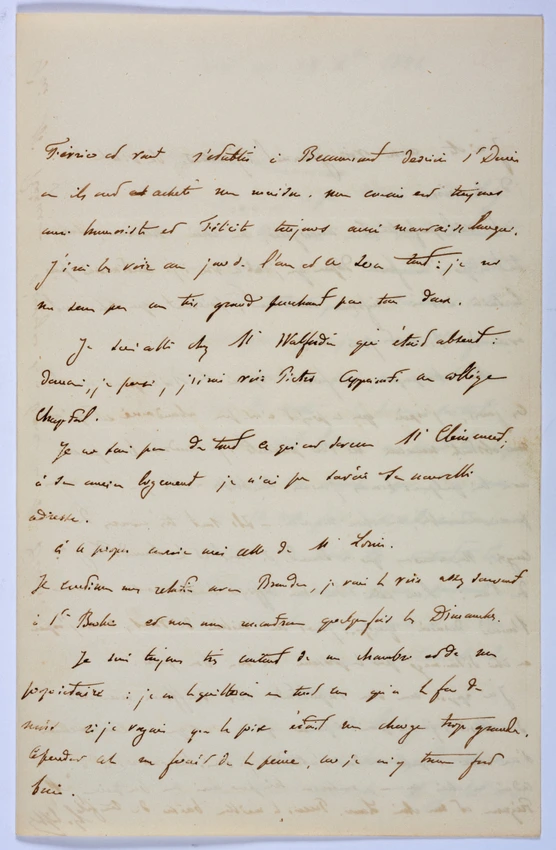 vont s'établir à Beaumont derrière St Denis
où ils ont acheté une maison. mon cousin est toujours
aussi humoriste et Félicité toujours aussi mauvaise langue.
J'irai les voir au jour de l'an et ce sera tout : je ne
me sens pas un très grand penchant pour tous deux.
Je suis allé chez Mr Walferdin qui était absent :
demain, je pense, j'irai voir Pietro au collège
Chaptal.
Je ne sais pas du tout ce qu'est devenu Mr Clément ;
à son ancien logement je n'ai pu savoir sa nouvelle
adresse.
à ce propos envoie moi celle de Mr Louis.
Je continue mes relations avec je vais le voir assez souvent
à Ste Barbe et nous nous rencontrons quelquefois les Dimanches.
Je suis toujours très content de ma chambre et de mon
propriétaire : je ne le quitterai en tout cas qu'à la fin du
mois si je voyais que le prix était une charge trop grande.
Cependant cela me ferait de la peine, car je m'y trouve fort
bien.